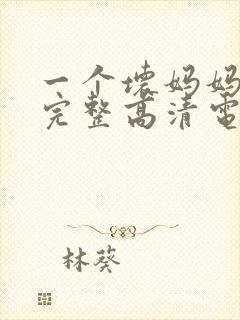 一个坏妈妈
完整高清电
林葵